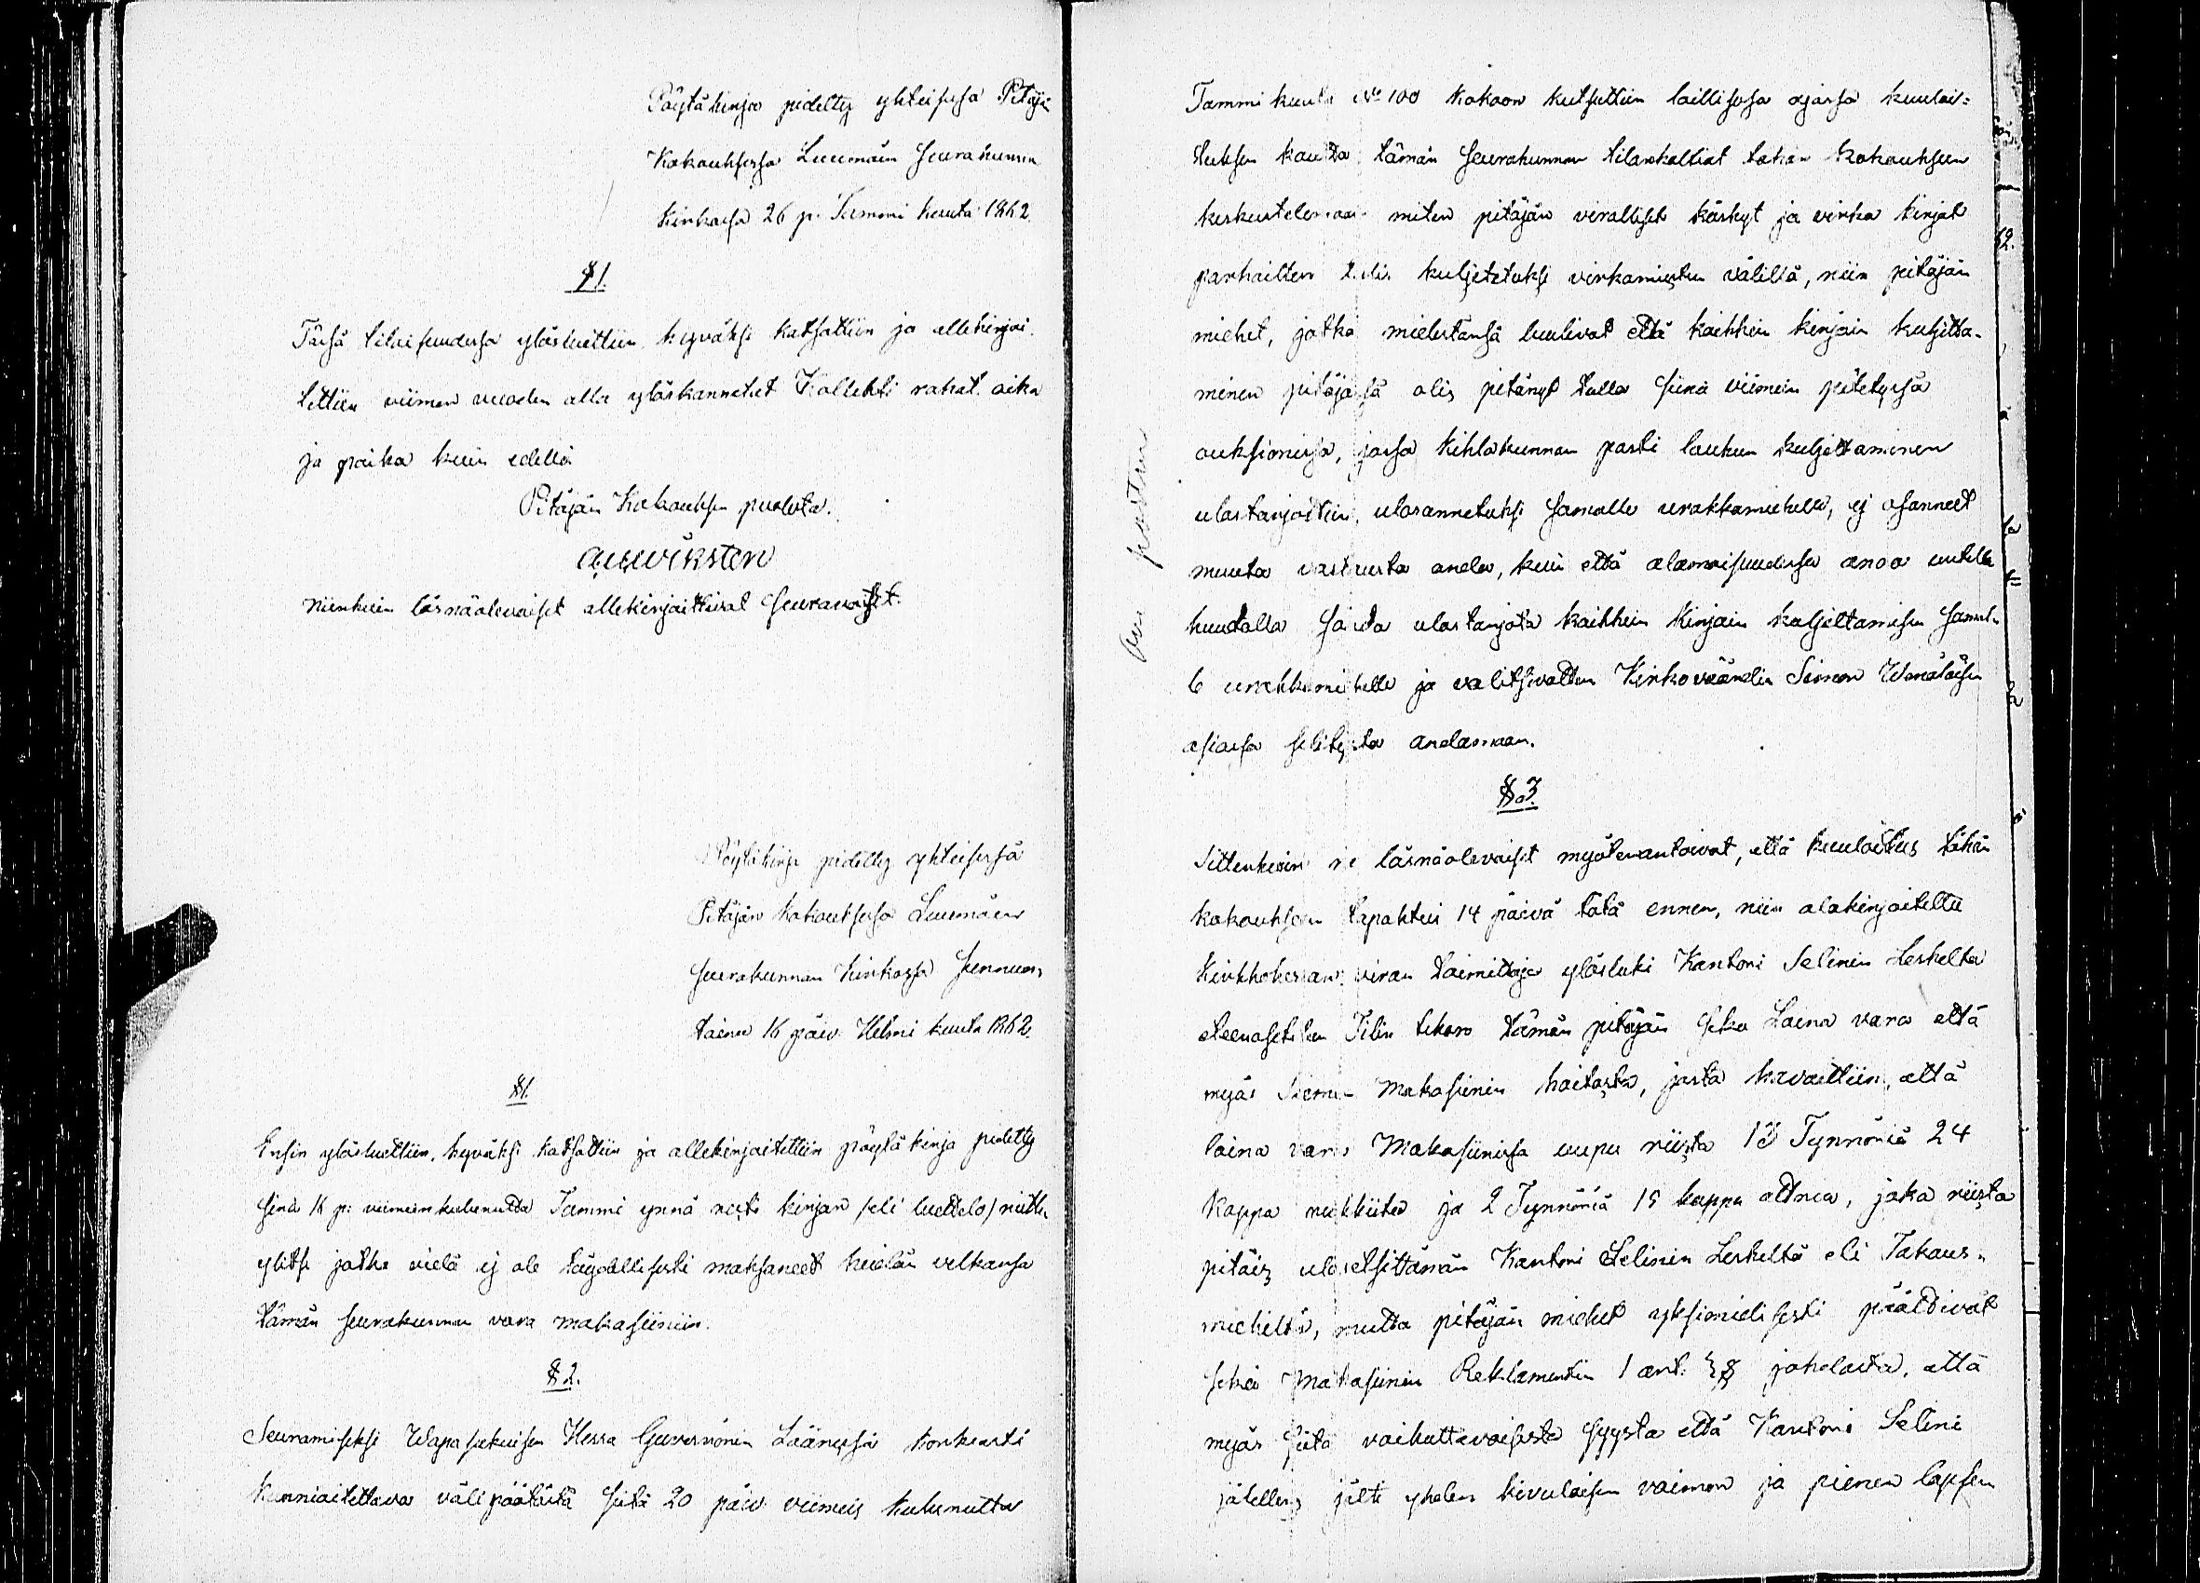 Pöytäkirja pidetty yhteisessä Pitäjä
Kokouksessa Luumäen seurakunnan
kirkossa 26 p. Tammi kuuta 1862.
§ 1.
Tässä tilaisuudessa ylösluettiin, hyväksi katsottiin ja allekirjoi-
tettiin viimen vuoden alla ylöskannetut Kollekti rahat. aika
ja paika kuin edellä
Pitäjän Kokouksen puolesta.
Aug Wiksten
Niinkuin läsnäolevaiset allekirjoittivat seuravaiset.
Pöytäkirja pidetty yhteisessä
Pitäjän kokouksessa Luumäen
seurakunnan kirkossa sunnun-
taina 16 päiv. Helmi kuuta 1862.
§ 1.
Ensin ylösluettiin, hyväksi katsottiin ja allekirjoitettiin pöytäkirja pidetty
sinä 16 p: viimeinkulunutta Tammi ynnä resti kirjan /eli luettelo/ niitten
ylitse jotka vielä ej ole täydellisesti maksaneet heidän velkansa
tämän seurakunnan vara makasiiniin.
§ 2.
Seuramiseksi Wapasukuisen Herra Guvernörin Läänissä korkeasti
kunniaitettava välipäätöstä sitä 20 päiv. viimeis kulunutta
Tammi kuuta No 100 Kokoon kutsuttiin laillisessa ajassa kuulai-
tuksen kautta tämän seurakunnan tilanhaltiat tähän kokoukseen
keskustelemaan miten pitäjän viralliset käskyt ja virka kirjat
parhaitten tulis kuljetetuksi virkamiesten välillä, niin pitäjän
miehet, jotka mielestänsä luulivat että kaikkien kirjain kuljetta-
minen pitäjässä olis pitänyt tulla siinä viimein pidetyssä
auksionissa, jossa kihlakunnan posti laukun kuljettaminen
ulostarjottiin, ulosannetuksi samalle urakkamiehelle, ej osanneet
muuta vastausta andaa, kuin että alamaisuudessa anoa uutella
huudolla saada ulostarjota kaikkien Kirjain kuljettamisen samal-
le urakkamiehelle ja valitsivatten Kirkoväändin Simon
asiassa selitystä andamaan.
An posten
§ 3.
Sittenkuin ne läsnäolevaiset myötenantoivat, että kuulaitus tähän
kokoukseen tapahtui 14 päivä tätä ennen, niin alakirjoitettu
Kirkkoherran viran toimittaja ylösluki Kantori Selinin Leskeltä
eteenasetetun Tilin tekoro tämän pitäjän sekä Laina vara että
myös Siemen Makasiinin hoitosta, josta havaittiin, että
laina vara Makasiinissa uupu riista 13 Tynnöriä 24
Kappa rukkiita ja 2 Tynnöriä 15 kappa otraa, joka riista
pitäis ulosetsittämän Kantori Selinin Leskeltä eli Takaus-
miehiltä, mutta pitäjän miehet yksimielisesti päätivät
sekä Makasiinin Reklamentin 1 art. § johdosta, että
myös siitä vaikuttavaisesta syystä että Kantori Selini
jätellens jälte yhden kivulaisen vaimon ja pienen lapsen